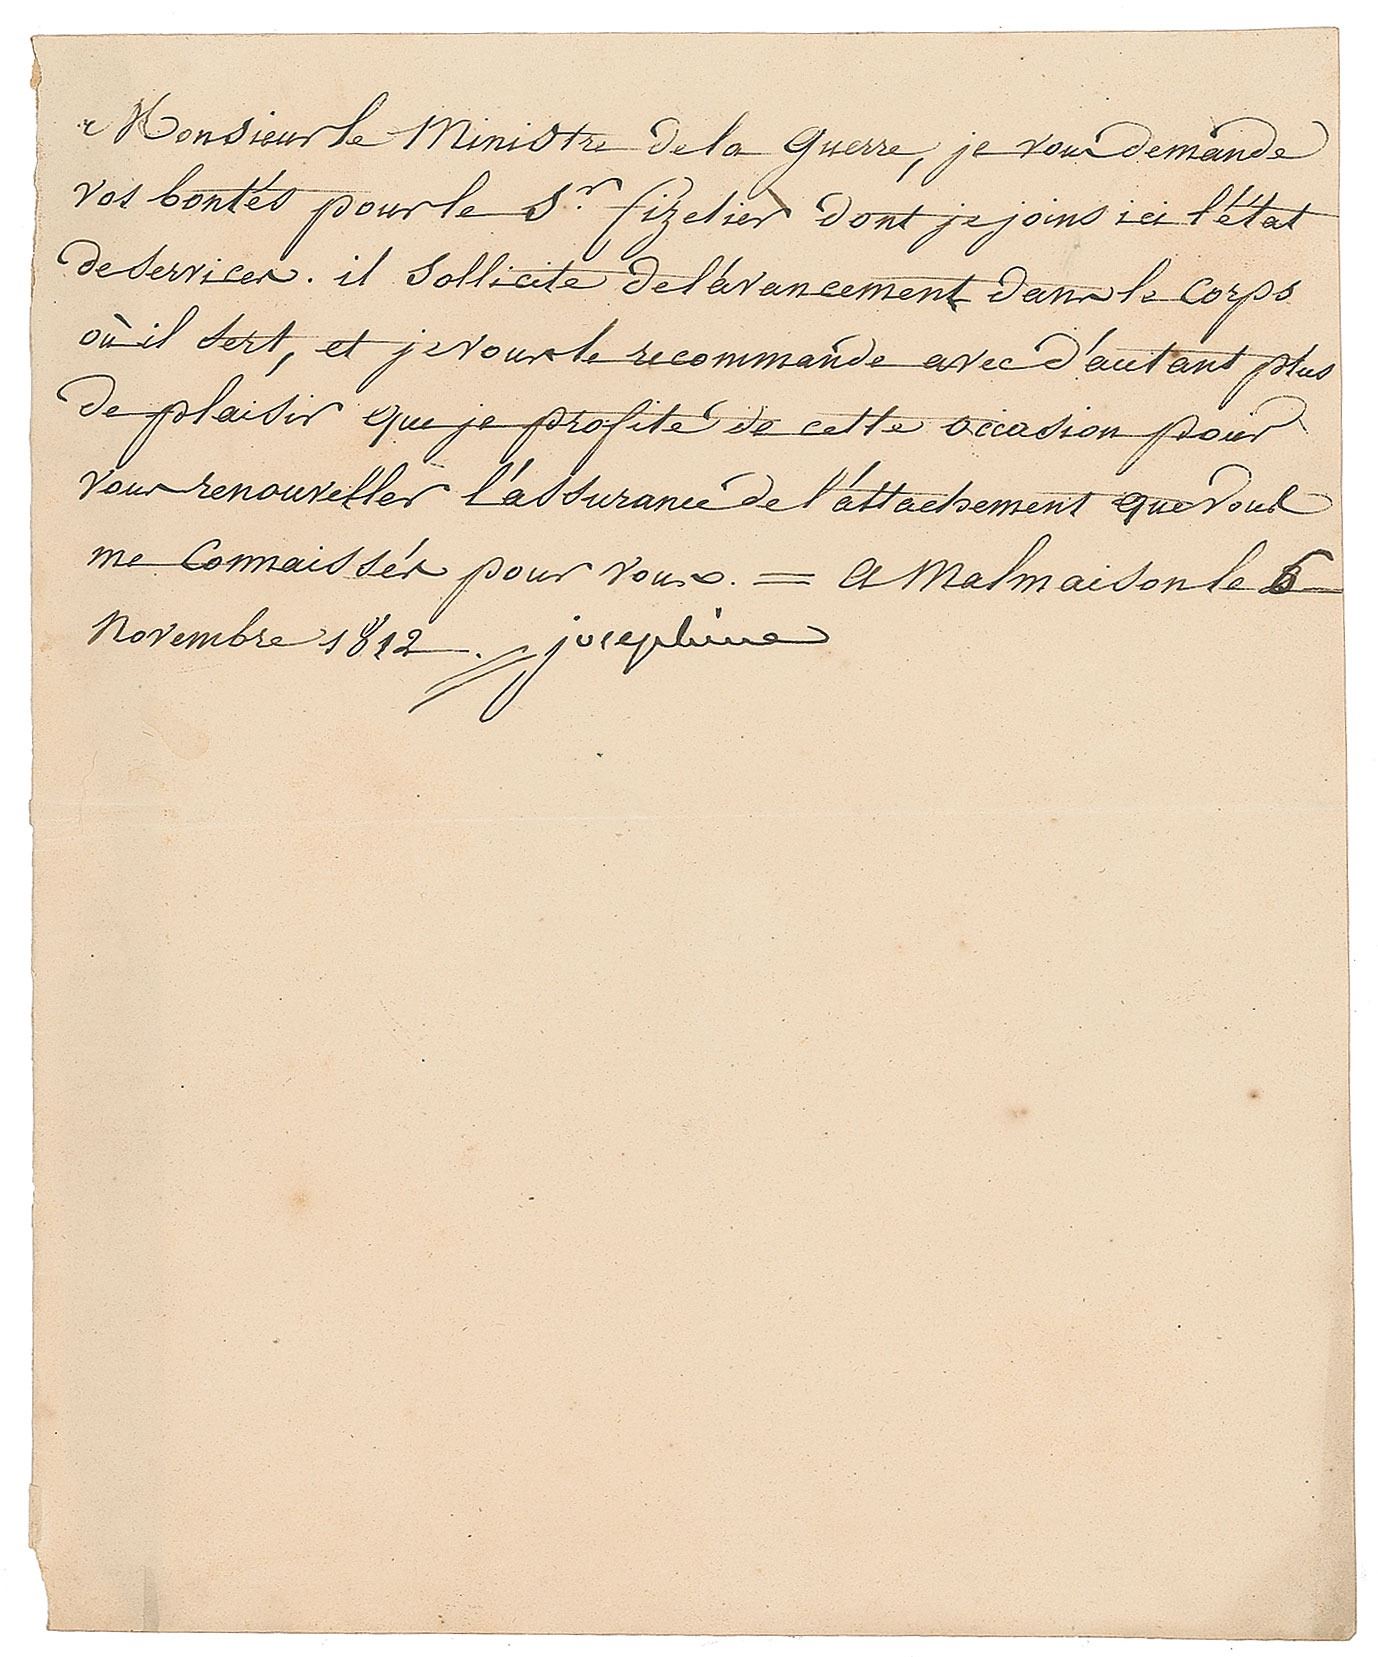 Monsieur le Ministre de la Guerre, je vous demande
vos bontés pour le S.r fizelier dont je joins ici l'état
de services. il sollicite de l'avancement dans le corps
où il sert, et je vous le recommande avec d'autant plus
de plaisir que je profite de cette occasion pour
vous renouveller l'assurance de l'attachement que vous
me connaissés pour vous. = a Malmaison le
Novembre 1812. josephine